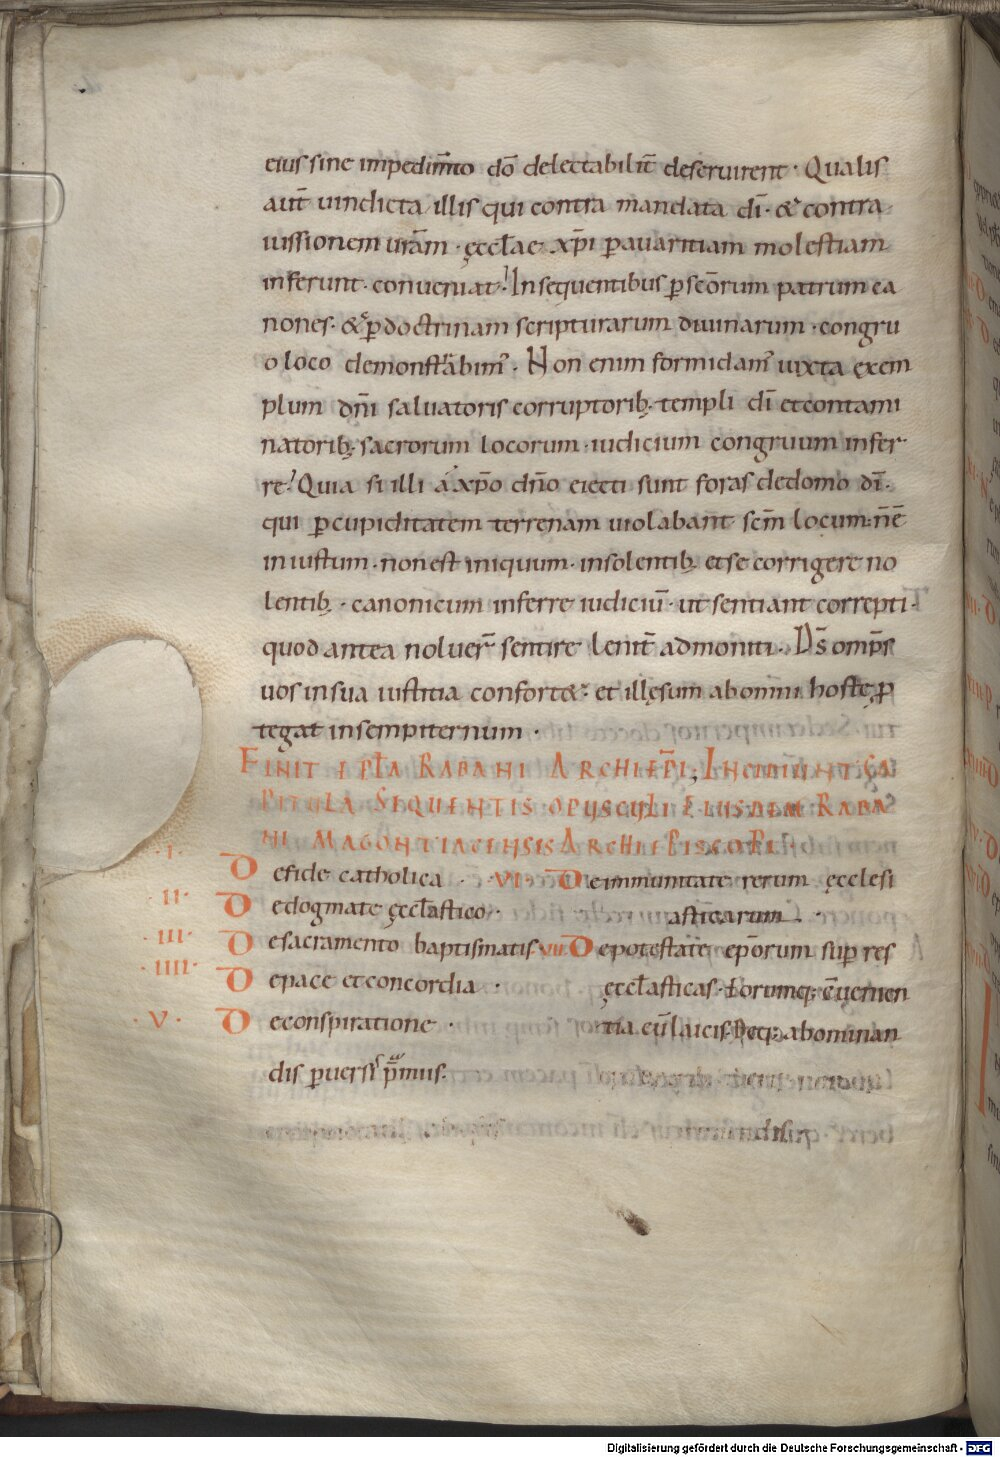 eius sine impedim̅to do̅ delectabilit̅ deseruirent · Qualis
aut̅ uindicta illis qui contra mandata di̅ · & contra
iussionem ur̅am · ęccl̅ae xp̅i p̲ auaritiam molestiam
inferunt · conueniat · In sequentibus p̲ sc̅orum patrum ca
nones · & p̲ doctrinam scripturarum diuinarum · congru
o loco demonstrabim᾽ · Non enim formidam᾽ iuxta exem
plum dn̅i saluatoris corruptorib; templi di̅ et contami
natorib; sacrorum locorum · iudicium congruum infer
re · Quia si illi a xp̅o dn̅o eiecti sunt foras de domo di̅ ·
qui p̲ cupiditatem terrenam uiolabant sc̅m locum · n̅ e̅
iniustum · non est iniquum · insolentib; et se corrigere no
lentib; · canonicum inferre iudiciu̅ · ut sentiant correpti ·
quod antea noluer̅ sentire lenit̅ admoniti · Ds̅ omp̅s
uos in sua iustitia confort& · et illęsum ab omni hoste p̲
tegat in sempiternum ·
FINIT EPL̅A RABANI ARCHIEP̅I; INCIPIUNT CA
PITULA SEQUENTIS OPUSCULI EIUSDEM RABA
NI MAGONTIACENSIS ARCHIEPISCOPI ·
· I · De fide catholica · · VI · De immunitate rerum ęcclesi
· II · De dogmate ęccl̅astico · asticarum ·
· III · De sacramento baptismatis · VII · De potestate ep̅orum sup̲ res
· IIII · De pace et concordia · ęccl̅asticas · Eorumq; co̅uenien
· V · De conspiratione · tia cu̅ laicis · Deq; abominan
dis p̲uersis p̅mus ·
Digitalisierung gefördert durch die Deutsche Forschungsgemeinschaft - DFG